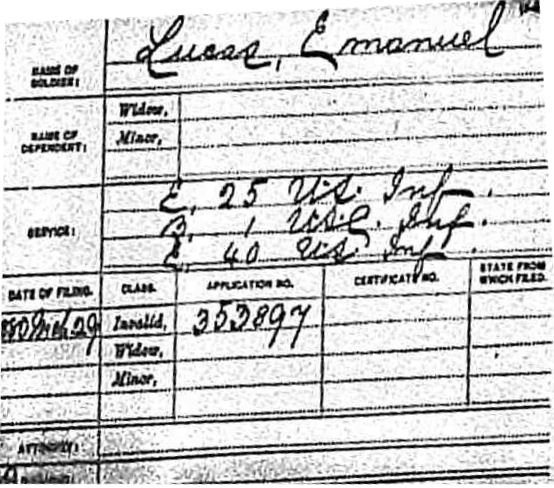 Lucas, Emanuel
NAME OF
SOLDIER:
NAME OF
DEPENDENT:
Widow,
Minor,
SERVICE:
E, 25 U.S. Inf.
B, 1 U.S.C. Inf.
E, 40 U.S. Inf.
DATE OF FILING.
CLASS.
APPLICATION NO.
CERTIFICATE NO.
STATE FROM
WHICH FILED.
Invalid,
353897
Widow,
Minor,
ATTORNEY: